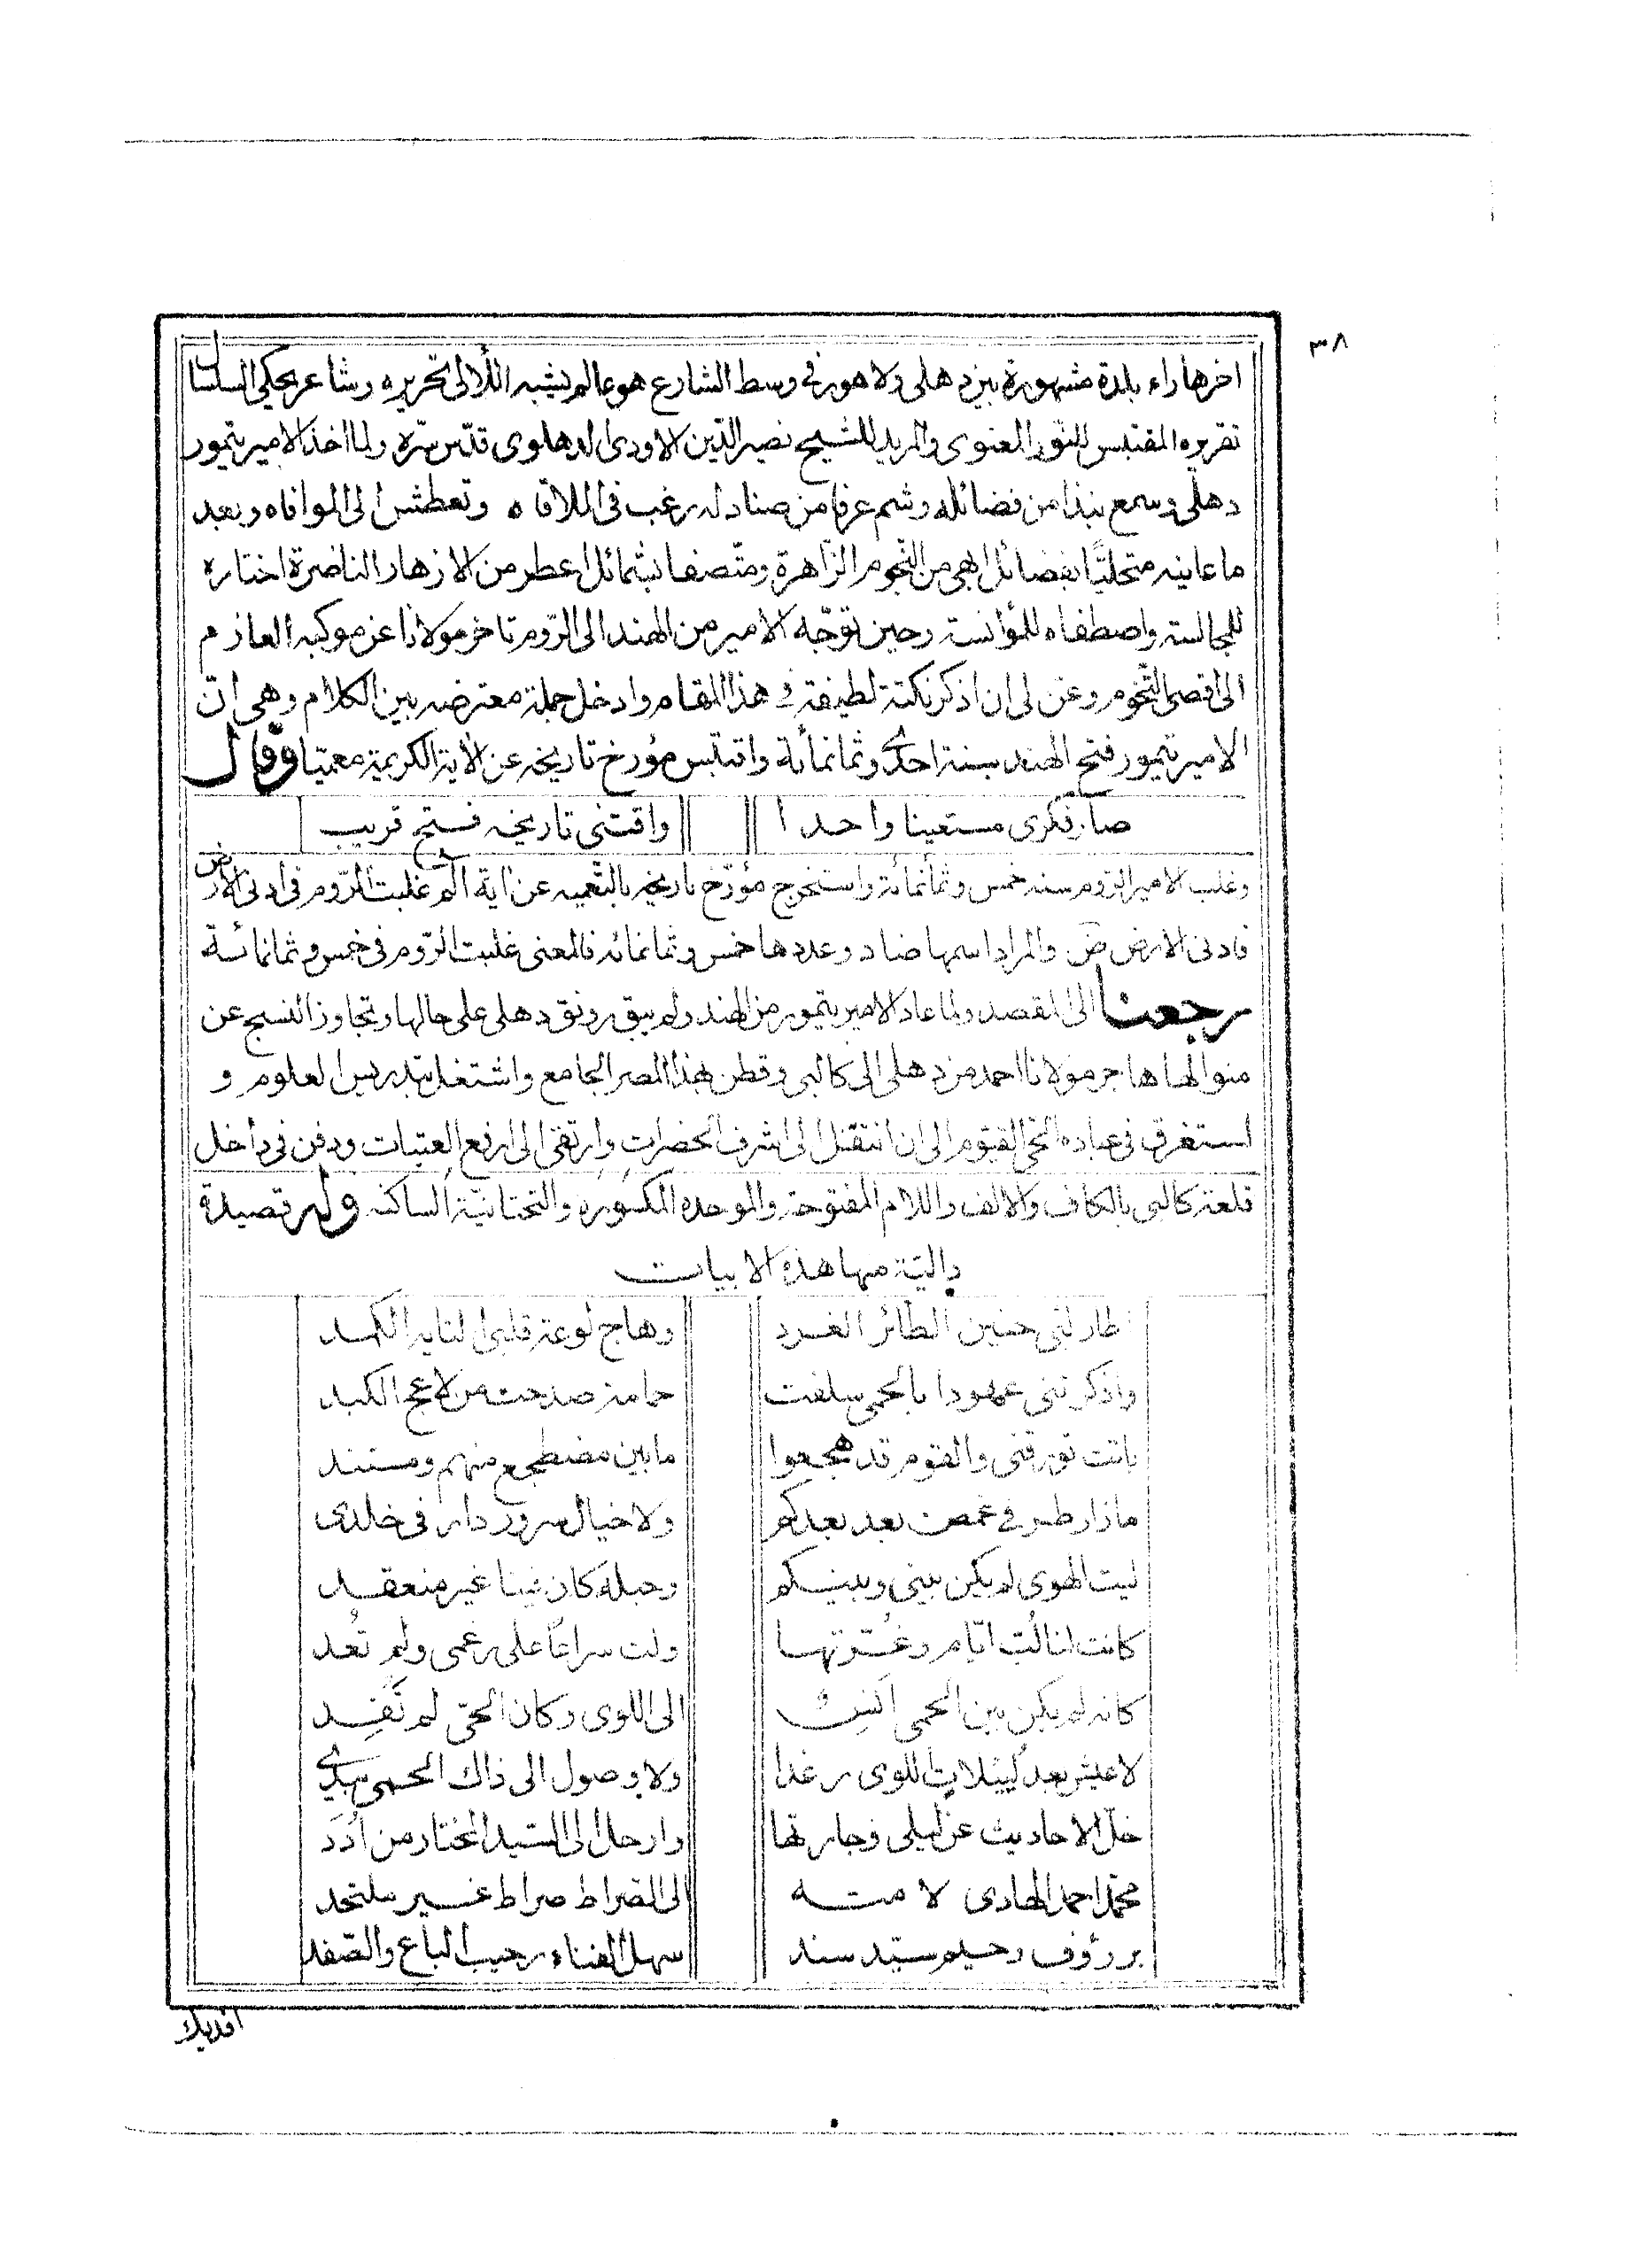 ٣٨
اخرها راء بلدة مشهورة بين دهلى ولاهور فى وسط الشارع هو عالم يشبه اللآلى تحريره وشاعر يحكى السلسال
تقريره المقتبس للنور المعنوى والمريد للشيخ نصير الدّين الاودى الدهلوى قدّس سرّه ولما اخذ الامير تيمور
دهلى وسمع نبذا من فضائله وشم عرفا من صنادله رغب فى الملاقاه وتعطش الى الموافاه وبعد
ما عاينه متحليًّا بفضائل ابهى من النّجوم الزّاهرة ومتّصفا بشمائل اعطر من الازهار الناضرة اختاره
للمجالسته واصطفاه للمؤانسته وحين توجّه الامير من الهند الى الرّوم تاخر مولانا عن موكبه العازم
الى اقصى التّخوم وعن لى ان اذكر نكتة لطيفة فى هذا المقام وادخل جملة معترضه بين الكلام وهى انّ
الامير تيمور فتح الهند سنة احدى وثمانمائة واقتبس مؤرخ تاريخه عن الاية الكريمة معميّا وقال
صار فكرى مستعينا واحدا واقتنى تاريخه فتح قريب
وغلب الامير الروم سنه خمس وثمانمائة واستخرج مؤرّخ تاريخه بالتّعميه عن آية الم غلبت الرّوم فى ادنى الارض
فادنى الارض ض والمراد اسمها ضاد وعددها خمس وثمانمائه فالمعنى غلبت الرّوم فى خمس وثمانمائة
رجعنا الى المقصد ولما عاد الامير تيمور من الهند ولم يبق رونق دهلى على حالها وتجاوز النسج عن
منوالها هاجر مولانا احمد من دهلى الى كالبى وقطن بهذا المصر الجامع واشتغل بتدريس العلوم و
استغرق فى عباده الحى القيّوم الى ان انتقل الى اشرف الحضرات وارتقى الى ارفع العتبات ودفن فى داخل
قلعة كالبى بالكاف والالف واللام المفتوحة والموحده المكسوره والتحتانيّة الساكنه وله قصيدة
داليّة منها هذه الابيات
اطار لبّى حنين الطّائر الغرد وهاج لوعة قلبى التايه الكمد
واذكرتنى عهودا بالحمى سلفت حمامة صدحت من لاعج الكبد
باتت تؤرقنى والقوم قد هجعوا ما بين مضطجع منهم ومستند
ما زار طرفى غمض بعد بعدكم ولا خيال سرور دار فى خلدى
ليت الهوى لم يكن بينى وبينكم وحبله كان فينا غير منعقد
كانت لنا ايّام وغرّتها ولت سراعًا على رغمى ولم تعد
كانه لم يكن بين الحمى انس الى اللوى وكان الحىّ لم نفد
لا عيش بعد لييلات اللوى رغدا ولا وصول الى ذاك الحمى بيدى
خل الاحاديث عن ليلى وجارتها وارحل الى السّيد المختار من ادد
محمّد احمد الهادى لامته الى الصراط صراط غير ملتحد
بر رؤف رحيم سيّد سند سهل الفناء رحيب الباع والصّفد
افديك